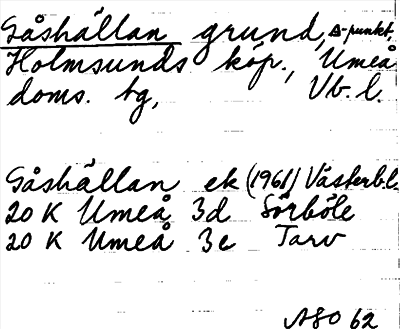 Gåshällan grund, Δ-punkt,
Holmsunds köp., Umeå
doms. tg, Vb. l.
Gåshällan ek (1961) Västerb.l.
20 K Umeå 3d Sörböle
20 K Umeå 3e Tarv
ASO 62